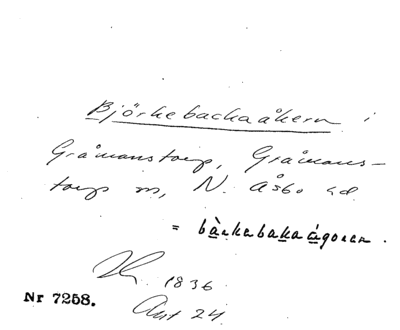 Björkebackaåkern i
Gråmanstorp, Gråmans-
torp sn, N. Åsbo hd.
= bàrkabakaågoren.
1836
Nr 7258.
Akt 24